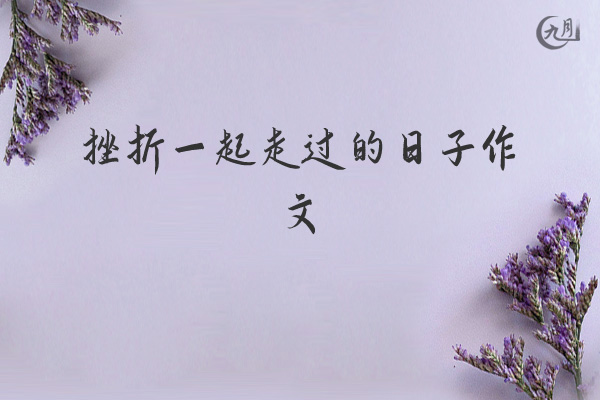 九月
挫折一起走过的日子作
文